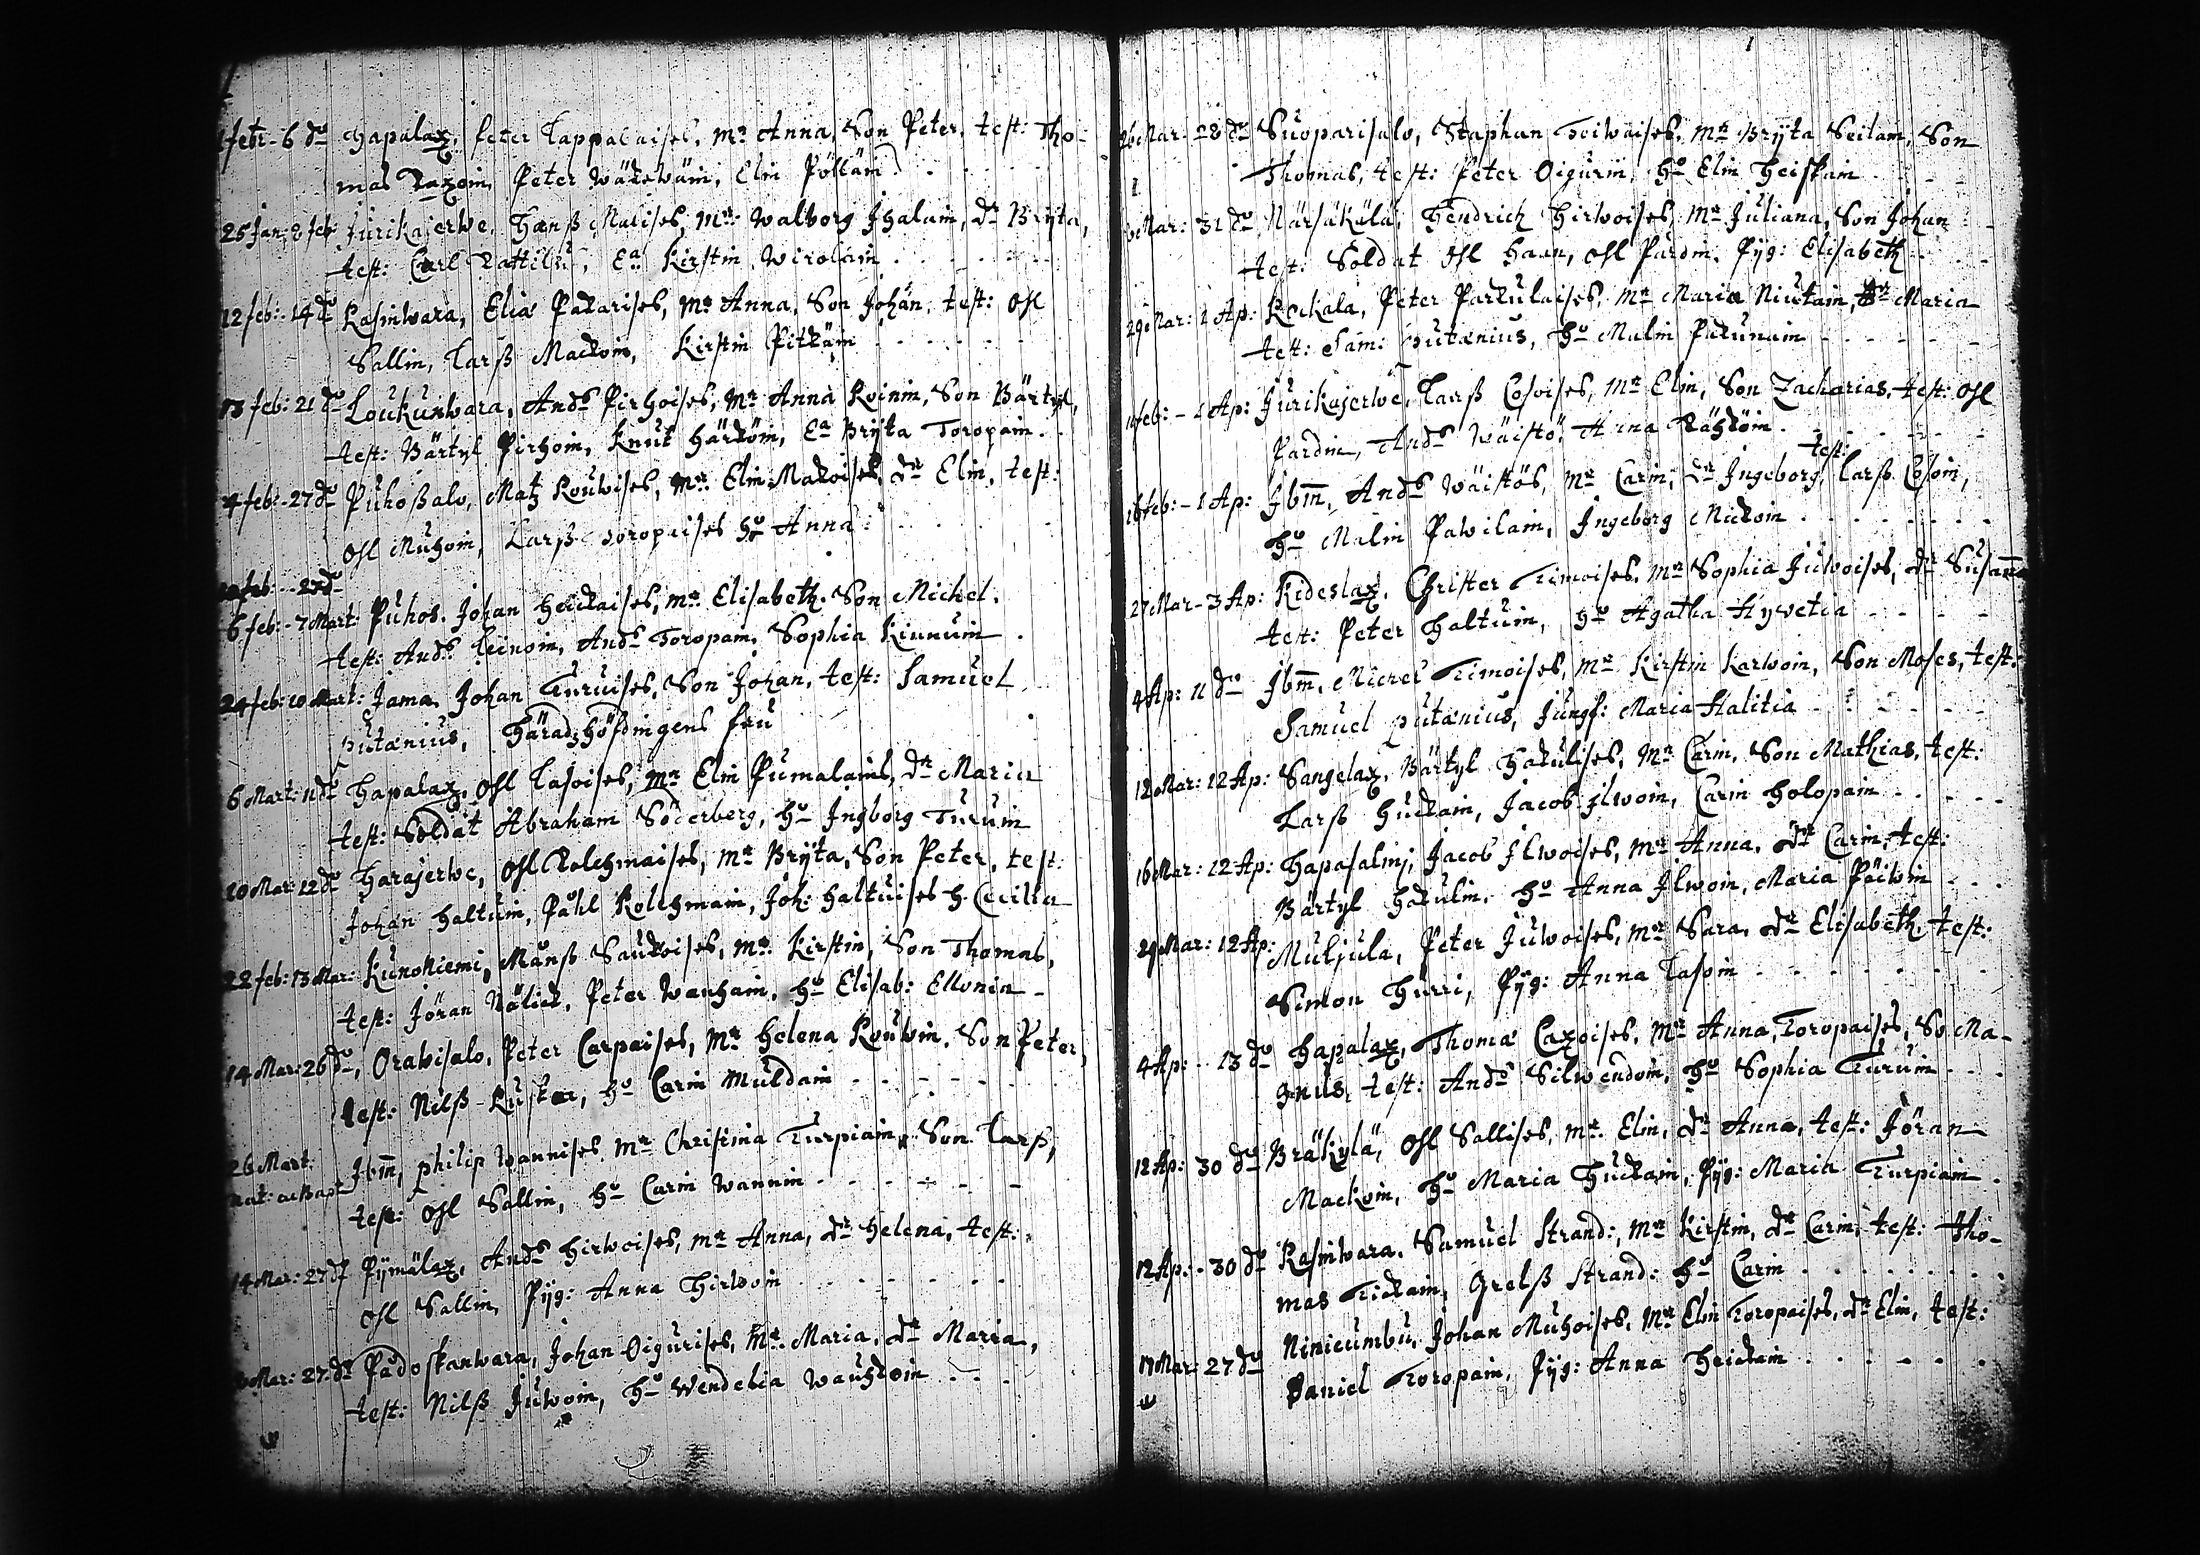 febr - 6 do Hapalax, Peter Lappalaises, mr Anna, Son Peter, test: Tho-
mas Laxoin, Peter Wäkewäin, Elin Pöllain
25 Jan: 2 feb Jurikajerwe, Hanß Malises, Mr: Walborg Jhalain, dr Brÿta,
test: Carl Rattilu, Ea Kirstin Wirolain
12 feb: - 14 do Rasinwara, Elia Pakarises, Mr Anna, Son Johan, test: Ohl
Sallin, Larß Mackoin, Kirstin Pitkäin
13 feb: 21 do Loukunwara, Ands Pirhoises, Mr Anna Koinin, Son Bärtyl,
test: Bärtyl Pirhoin, Knut Härköin, Ea Brÿta Toropain
4 feb: - 27 do Puhoßalo, Matz Rouwises, Mr: Elin Makoises, dr Elin, test:
Ohl Muhoin, Larß Toropaises ho Anna
feb: - 27 do
6 feb: - 7 Mart: Puhos, Johan Heickaises, mr Elisabeth, Son Michel,
test: Ands Leinoin, Ands Toropain, Sophia Kinnuin
24 feb: 10 Mart: Jama, Johan Turuises, Son Johan, test: Samuel
Putænius, Häradzhöfdingens fru
6 Mart: 11 do Hapalax, Ohl Lasoises, Mr Elin Pumalains, dr Maria
test: Soldat Abraham Söderberg, ho Jngborg Turuin
10 Mar: 12 do Harajerwe, Ohl Kolehmaises, mr Brÿta, Son Peter, test:
Johan Haltuin, Påhl Kolehmain, Joh: Haltuises h. Cecilia
22 feb: 13 Mar: Kunoniemi, Månß Saukoises, Mr Kirstin, Son Thomas,
test: Jöran Nälick, Peter Wanhain, ho Elisab: Ellonin
14 Mar: 26 do, Orawisalo, Peter Carpaises, Mr Helena Rouwin, Son Peter,
test: Nilß Kusker, ho Carin Muldain
26 Mart:
nat: ac bapt Jbm, philip Wannises, Mr Christina Turpiain, Son Larß,
test: Ohl Sallin, ho Carin Wannin
14 Mar: 27 do Pÿmälax, Ands Hirwoises, mr Anna, dr Helena, test:
Ohl Sallin, Pÿg: Anna Hirwoin
Mar: 27 do Padoskanwara, Johan Oigurises, Mr. Maria, dr Maria,
test: Nilß Juwoin, ho Wendelia Wauhkoin
26 Mar - 28 do Suoparisalo, Staphan Toiwaises, Mr Brÿta Seilain, Son
Thomas, test: Peter Oigurin, ho Elin Heiskain
Mar: 31 do Närsäkälä, Hendrich Hirwoises, Mr Juliana, Son Johan
test: Soldat Ohl Haan, Ohl Pardin, Pÿg: Elisabeth
29 Mar: 1 Ap: Kockala, Peter Parkulaises, Mr Maria Niukain, dr Maria
test: Sam: Putænius, ho Malin Pakunain
feb: - 1 Ap: Jurikajerwe, Larß Cosoises, Mr Elin, Son Zacharias, test: Ohl
Pardin, Ands Wäistö, Anna Rähköin
16 feb: - 1 Ap: Jbm, Ands Wäistös, Mr Carin, dr Jngeborg, test: Larß Cosoin,
ho Malin Pawilain, Jngeborg Mickoin
27 Mar - 3 Ap: Kideslax, Christer Timoises, Mr Sophia Juwoises, dr Susanna
test: Peter Haltuin, ho Agatha Hyvetia
4 Ap: 11 do Jbm, Michel Timoises, Mr Kirstin Karwoin, Son Moses, test:
Samuel Putænius, Jungf: Maria Halitia
12 Mar: 12 Ap: Sangelax, Bärtyl Hakulises, Mr Carin, Son Mathias, test:
Larß Huckain, Jacob Jlwoin, Carin Holopain
16 Mar: 12 Ap: Hapasalmj, Jacob Jlwoises, Mr Anna, dr Carin, test:
Bärtyl Hakulin, ho Anna Jlwoin, Maria Päiwin
29 Mar: 12 Ap: Muljula, Peter Juwoises, Mr Sara, dr Elisabeth, test:
Simon Hurri, Pÿg: Anna Lasoin
4 Ap: - 13 do Hapalax, Thoma Caxoises, Mr Anna, Toropaises, So Ma-
gnus, test: Ands Silwendoin, ho Sophia Turuin
12 Ap: 30 do Bräkylä, Ohl Sallises, mr Elin, dr Anna, test: Jöran
Mackoin, ho Maria Huckain, Pÿg: Maria Turpiain
12 Ap: - 30 do Rasinwara, Samuel Strand:, Mr Kirstin, dr Carin, test: Tho-
mas Tickain, Grelß Strand: ho Carin
17 Mar: 27 do Ninicumbu, Johan Muhoises, Mr Elin Toropaises, dr Elin, test:
Daniel Toropain, Pÿg: Anna Heickain